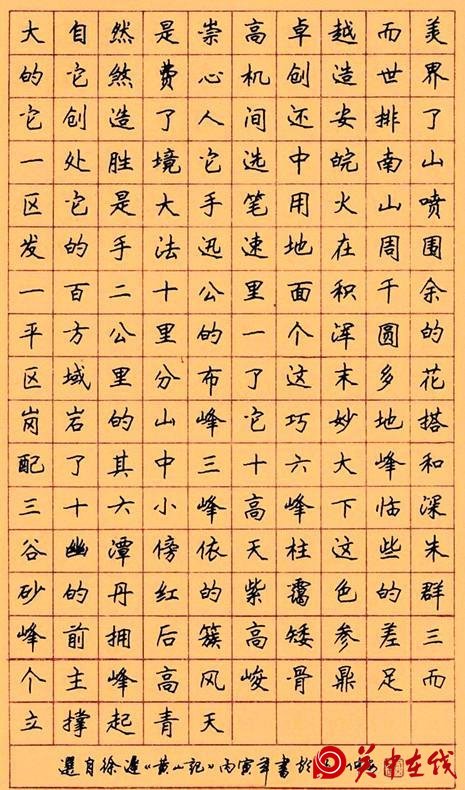 大自然是崇高卓越而美
的它煞费心机创造世界
它创造了人间还安排了
一处胜境它选中皖南山
区它是大手笔用火山喷
发的手法迅速地在周围
一百二十公里面积千余
平方公里的一个浑圆的
区域里分布了这末多花
岗岩的山峰它巧妙地搭
配了其中三十六大峰和
三十六小峰高峰下临深
谷幽潭傍依天柱这些朱
砂的丹红的紫霭色的群
峰前拥后簇高矮参差三
个主峰高风峻骨鼎足而
立撑起青天
選自徐遲《黄山记》丙寅年書於
关中在线